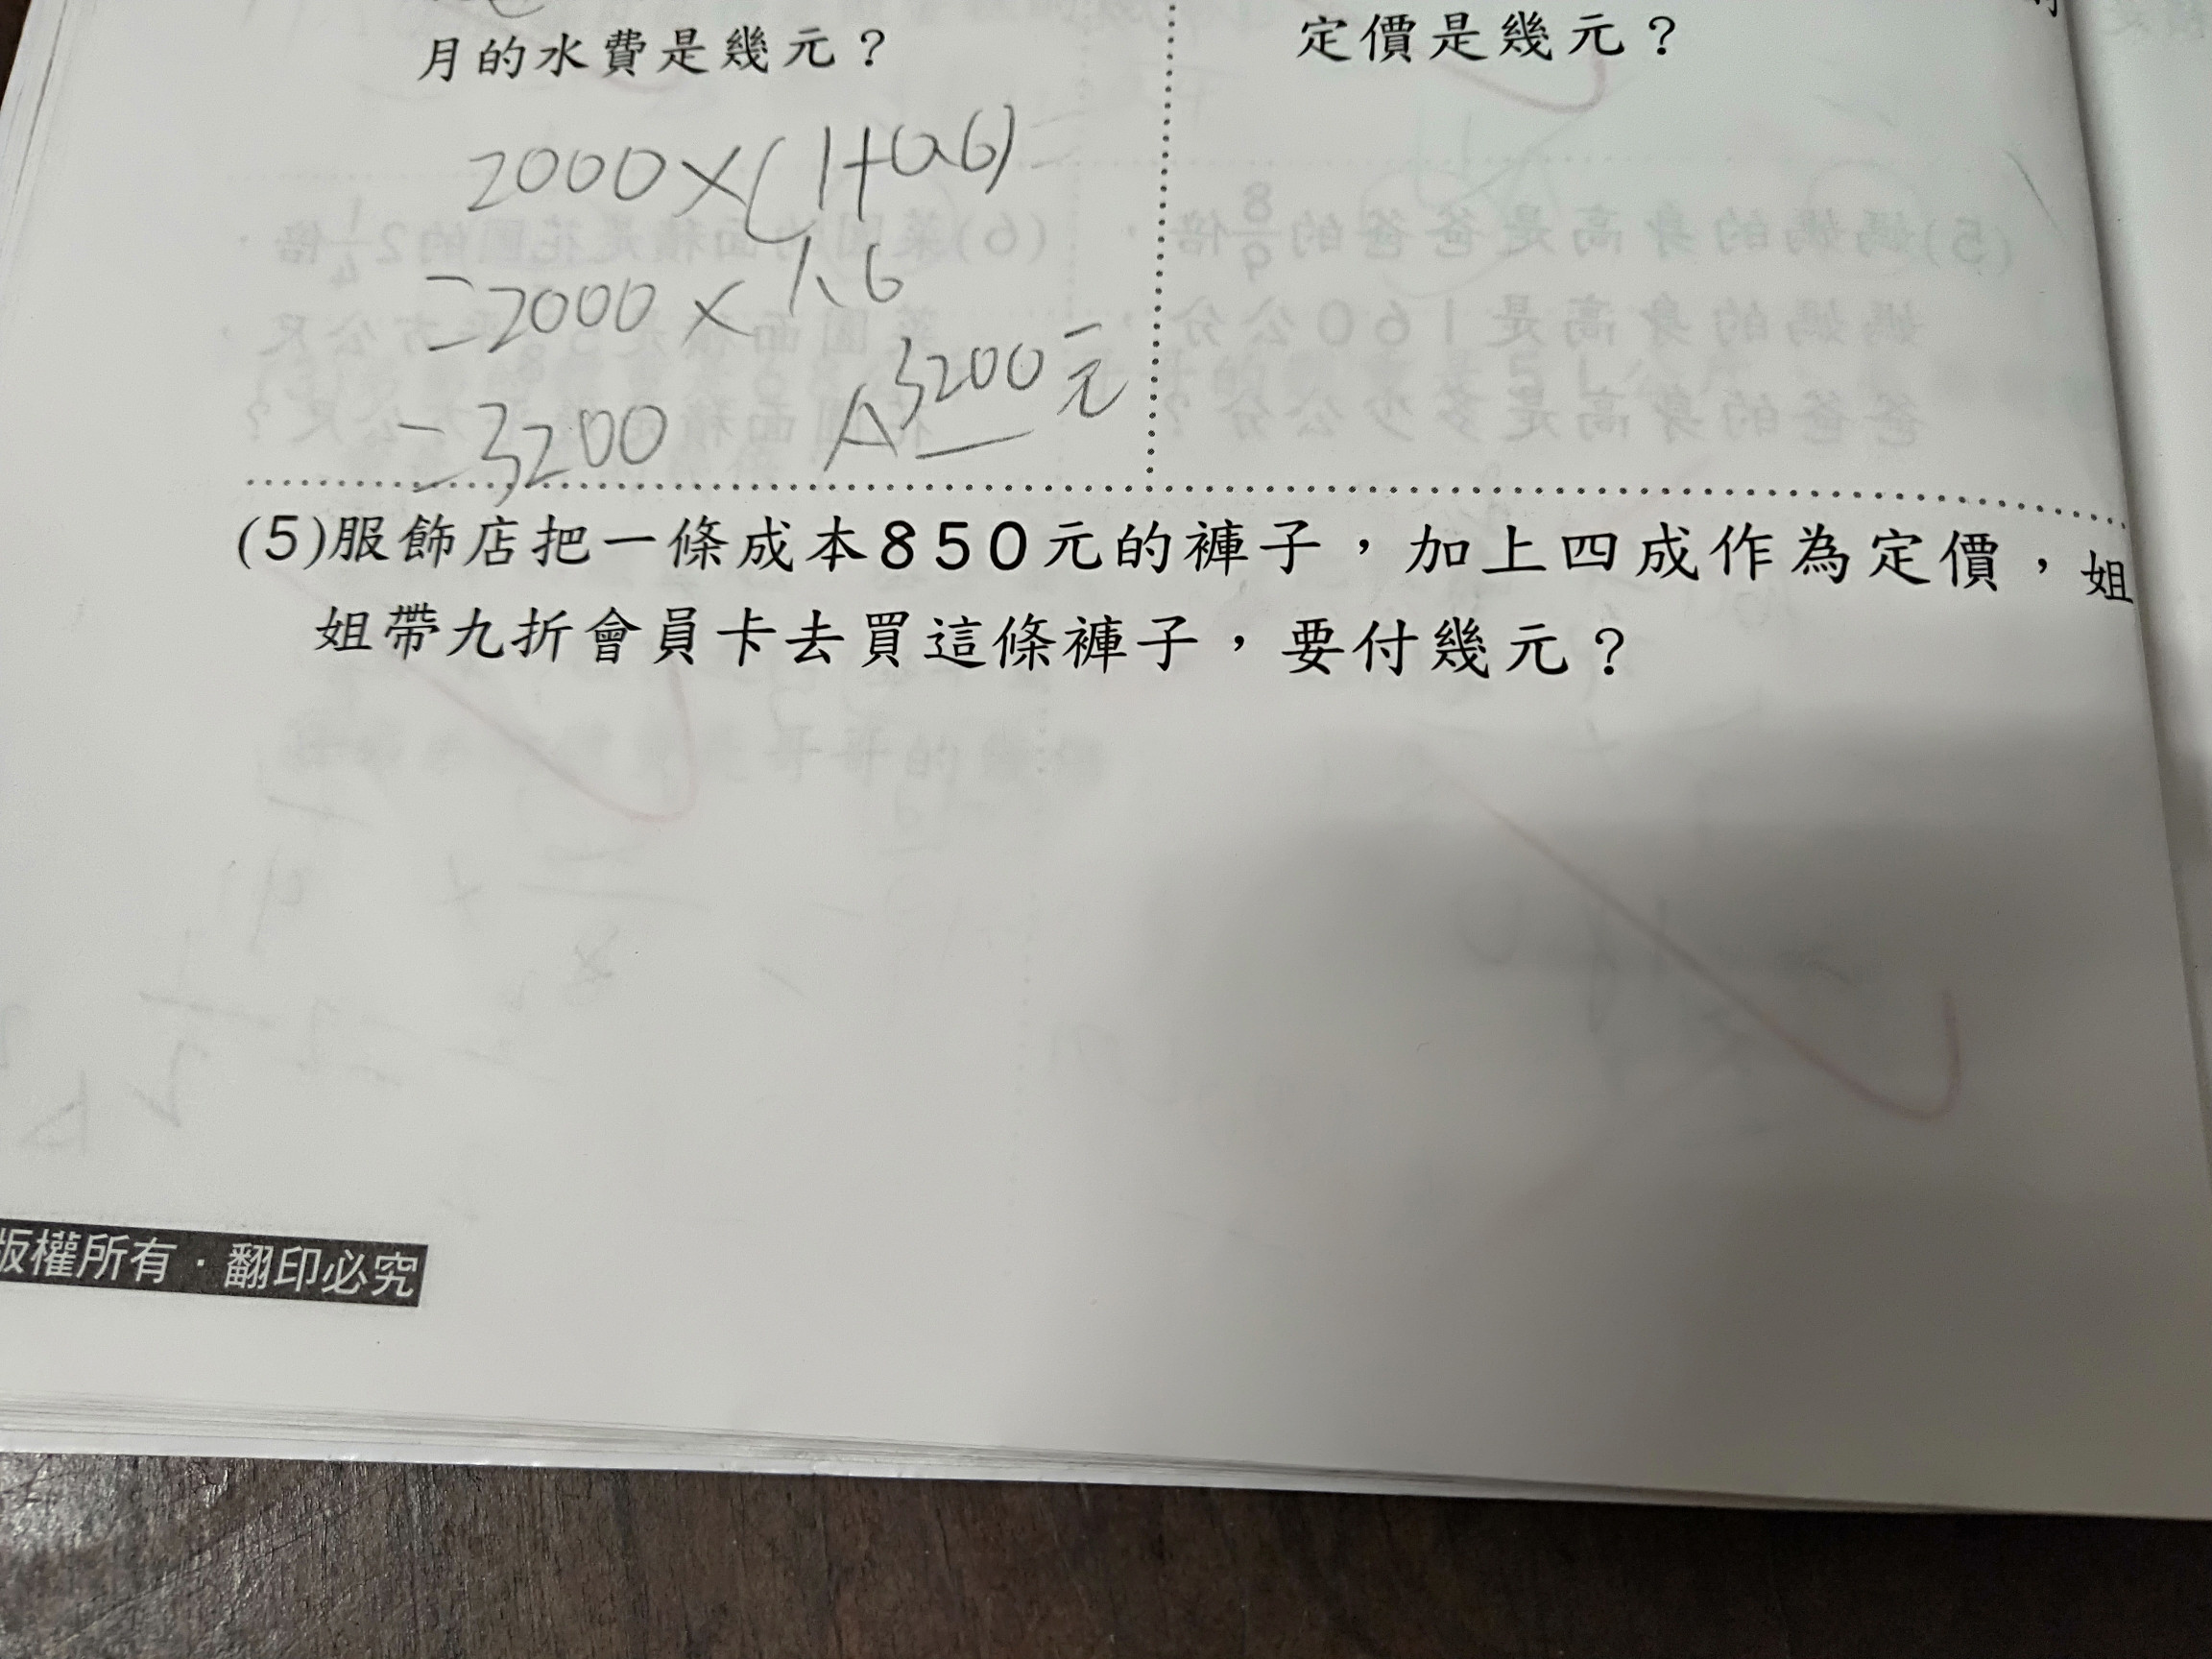 月的水費是幾元？
定價是幾元？
2000×(1+0.6)
=2000×1.6
=3200
A 3200元
(5)服飾店把一條成本850元的褲子，加上四成作為定價，姐
姐帶九折會員卡去買這條褲子，要付幾元？
版權所有·翻印必究